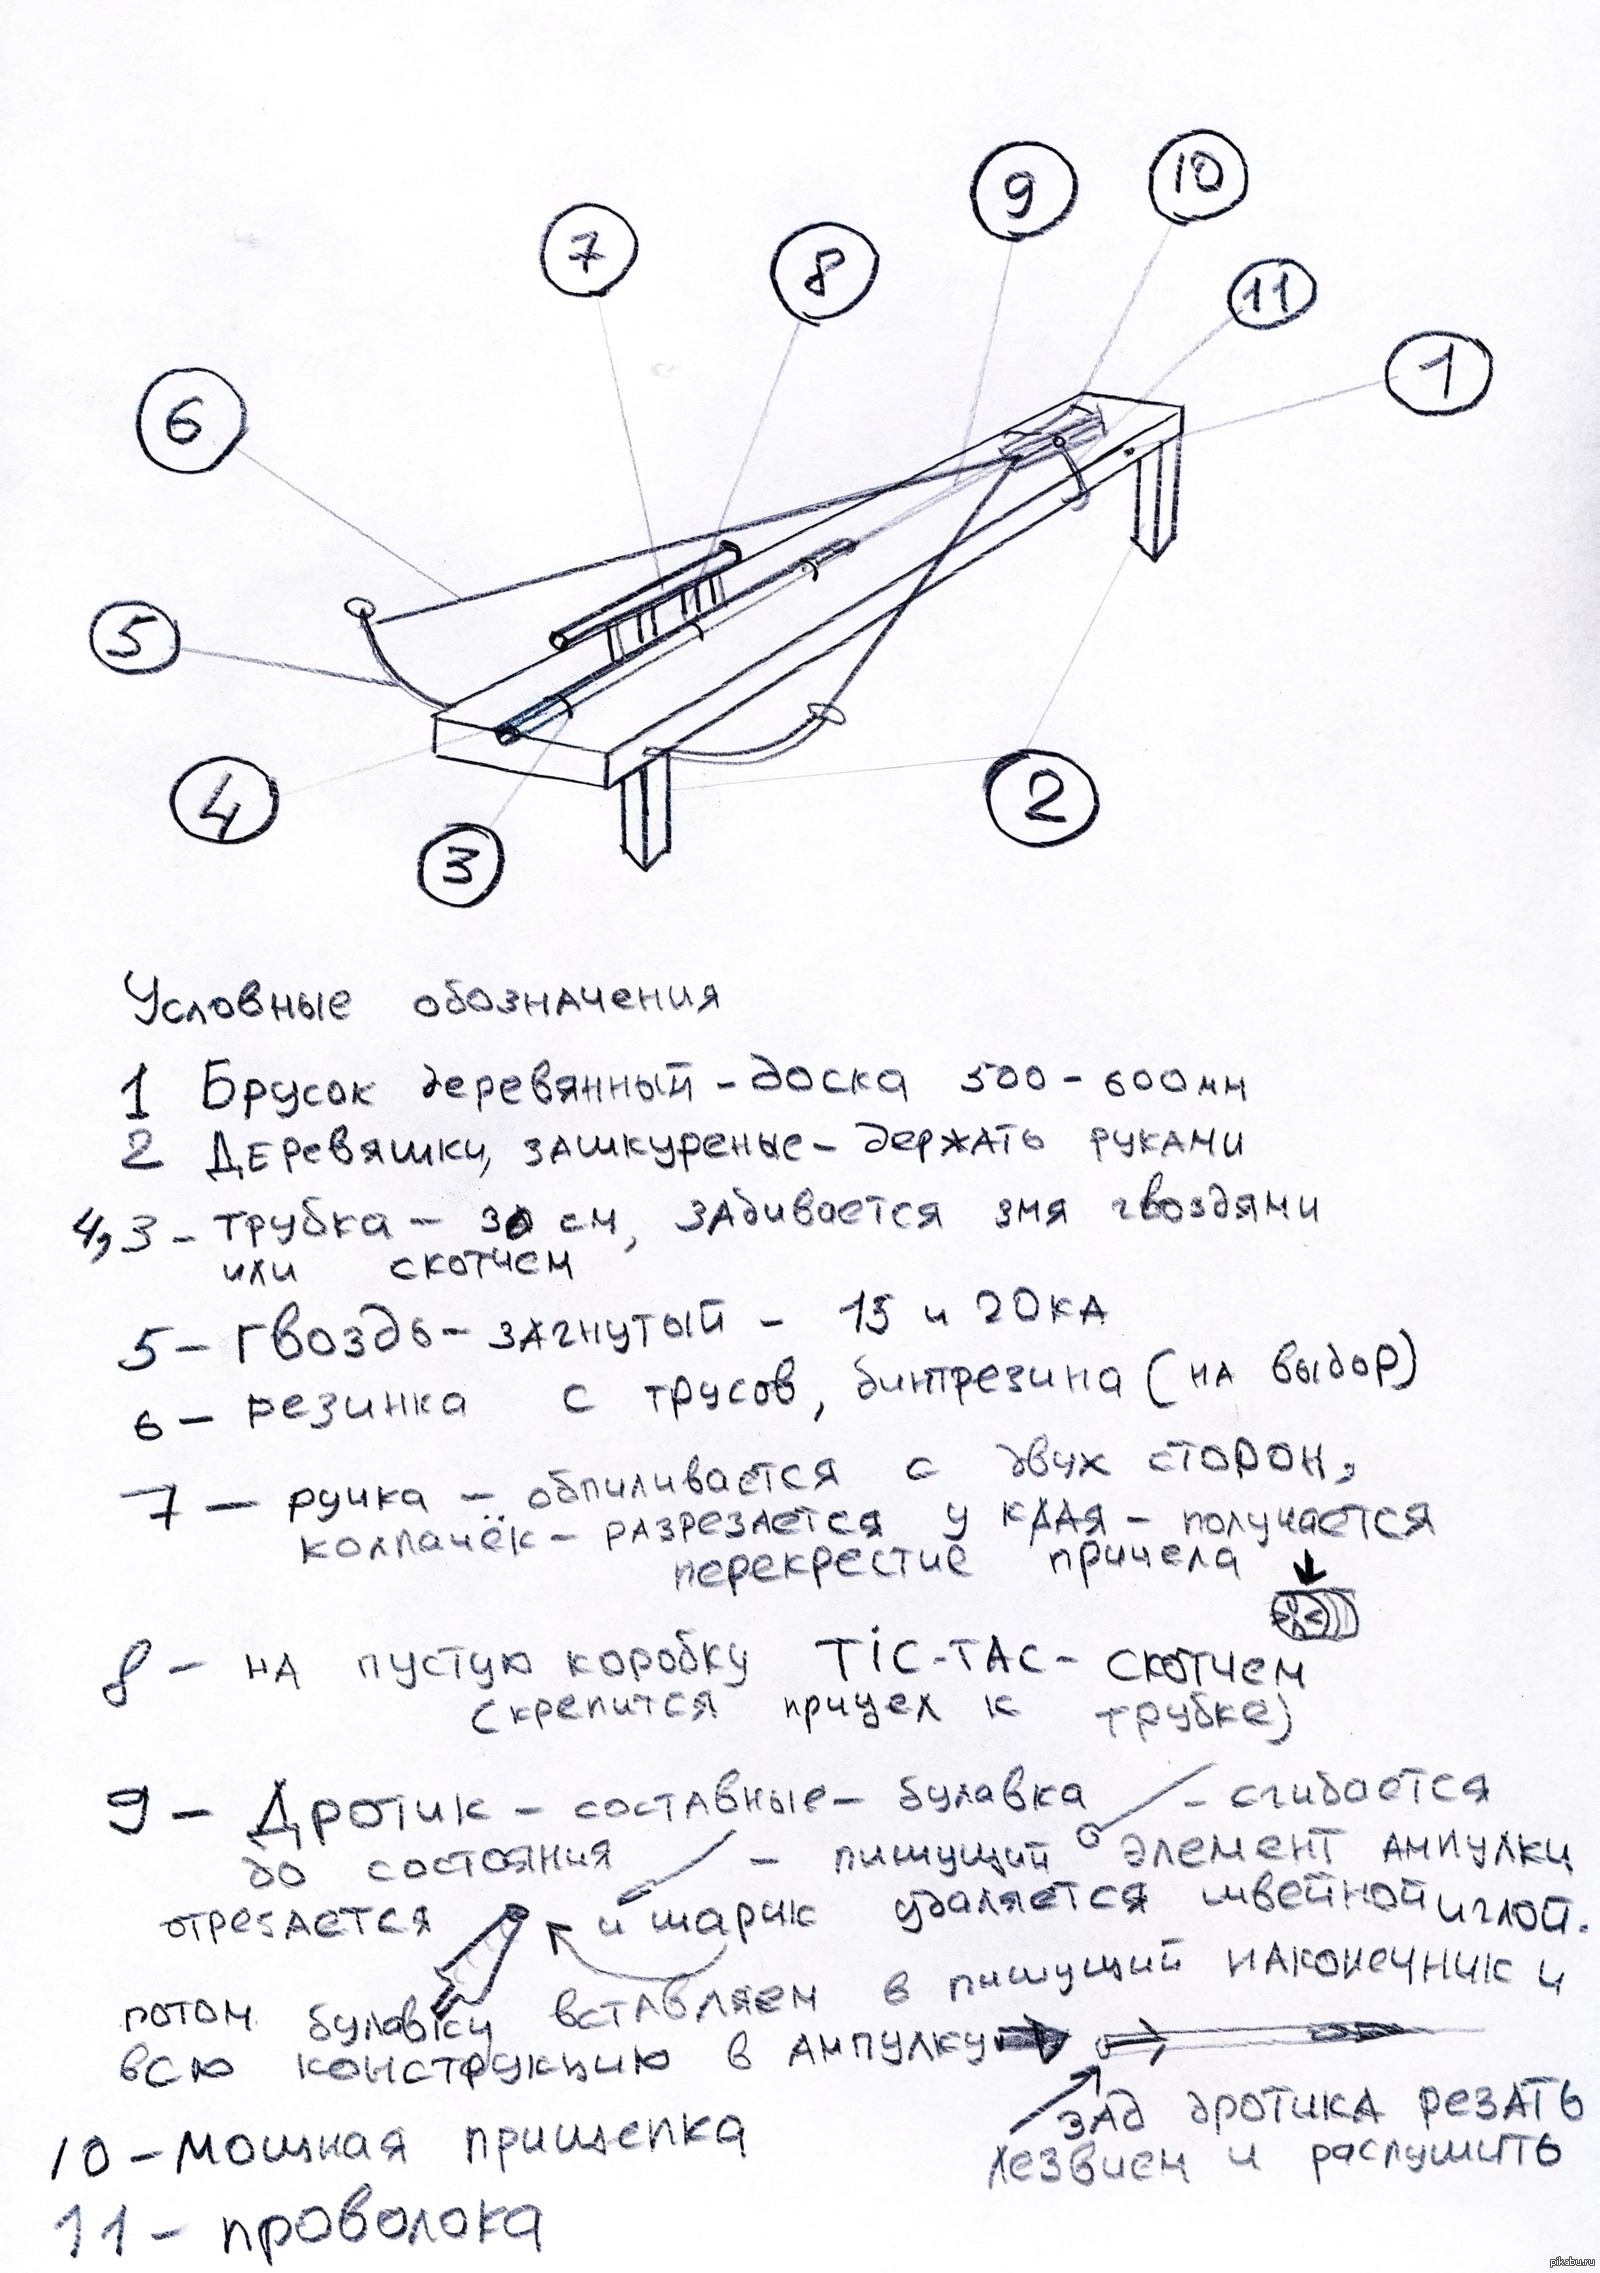 7
8
9
10
11
1
6
5
4
3
2
Условные обозначения
1 Брусок деревянный - доска 500 - 600мм
2 Деревяшки, зашкуреные - держать руками
4,3 - трубка - 30 см, забивается змя гвоздями
или скотчем
5 - гвоздь - загнутый - 15 и 20ка
6 - резинка с трусов, бинтрезина (на выбор)
7 - ручка - обпиливается с двух сторон,
колпачёк - разрезается у края - получается
перекрестие причела
8 - на пустую коробку TiC-TAC - скотчем
(скрепится прицел к трубке)
9 - Дротик - составные - булавка - сгибается
до состояния - пишущий элемент ампулки
отрезается и шарик удаляется швейной иглой.
потом булавку вставляем в пишущий наконечник и
всю конструкцию в ампулку
зад дротика резать
лезвием и распушить
10 - мощная прищепка
11 - проволока
pikabu.ru